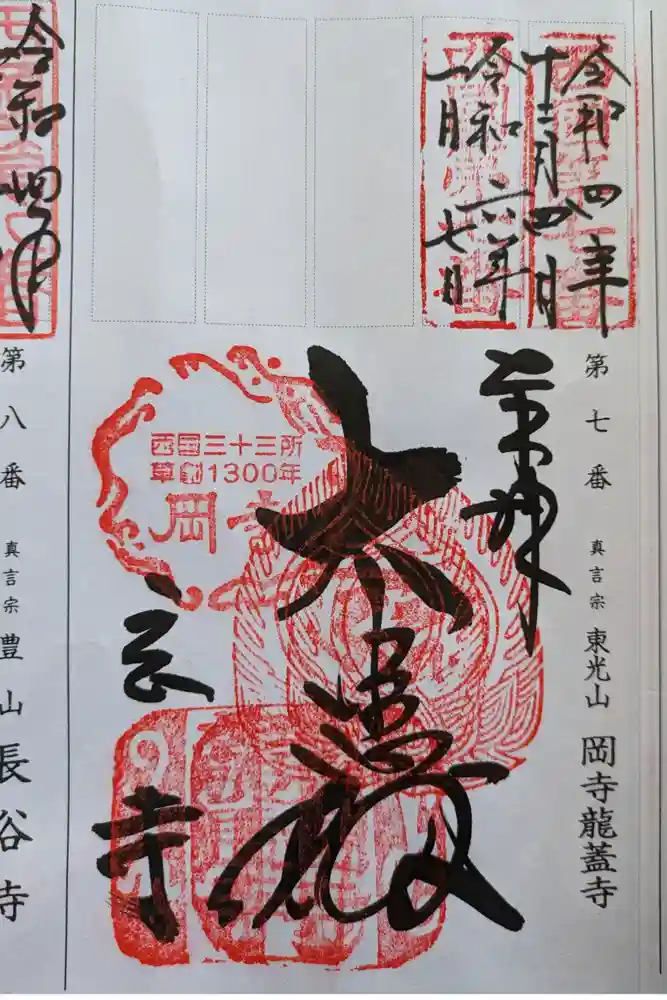 第七番 真言宗 東光山 岡寺龍蓋寺
令和四年
十二月四日
令和六年
一月七日
奉拝
大悲殿
岡寺
西国三十三所
草創1300年
岡寺
第八番 真言宗 豊山 長谷寺
令和四年